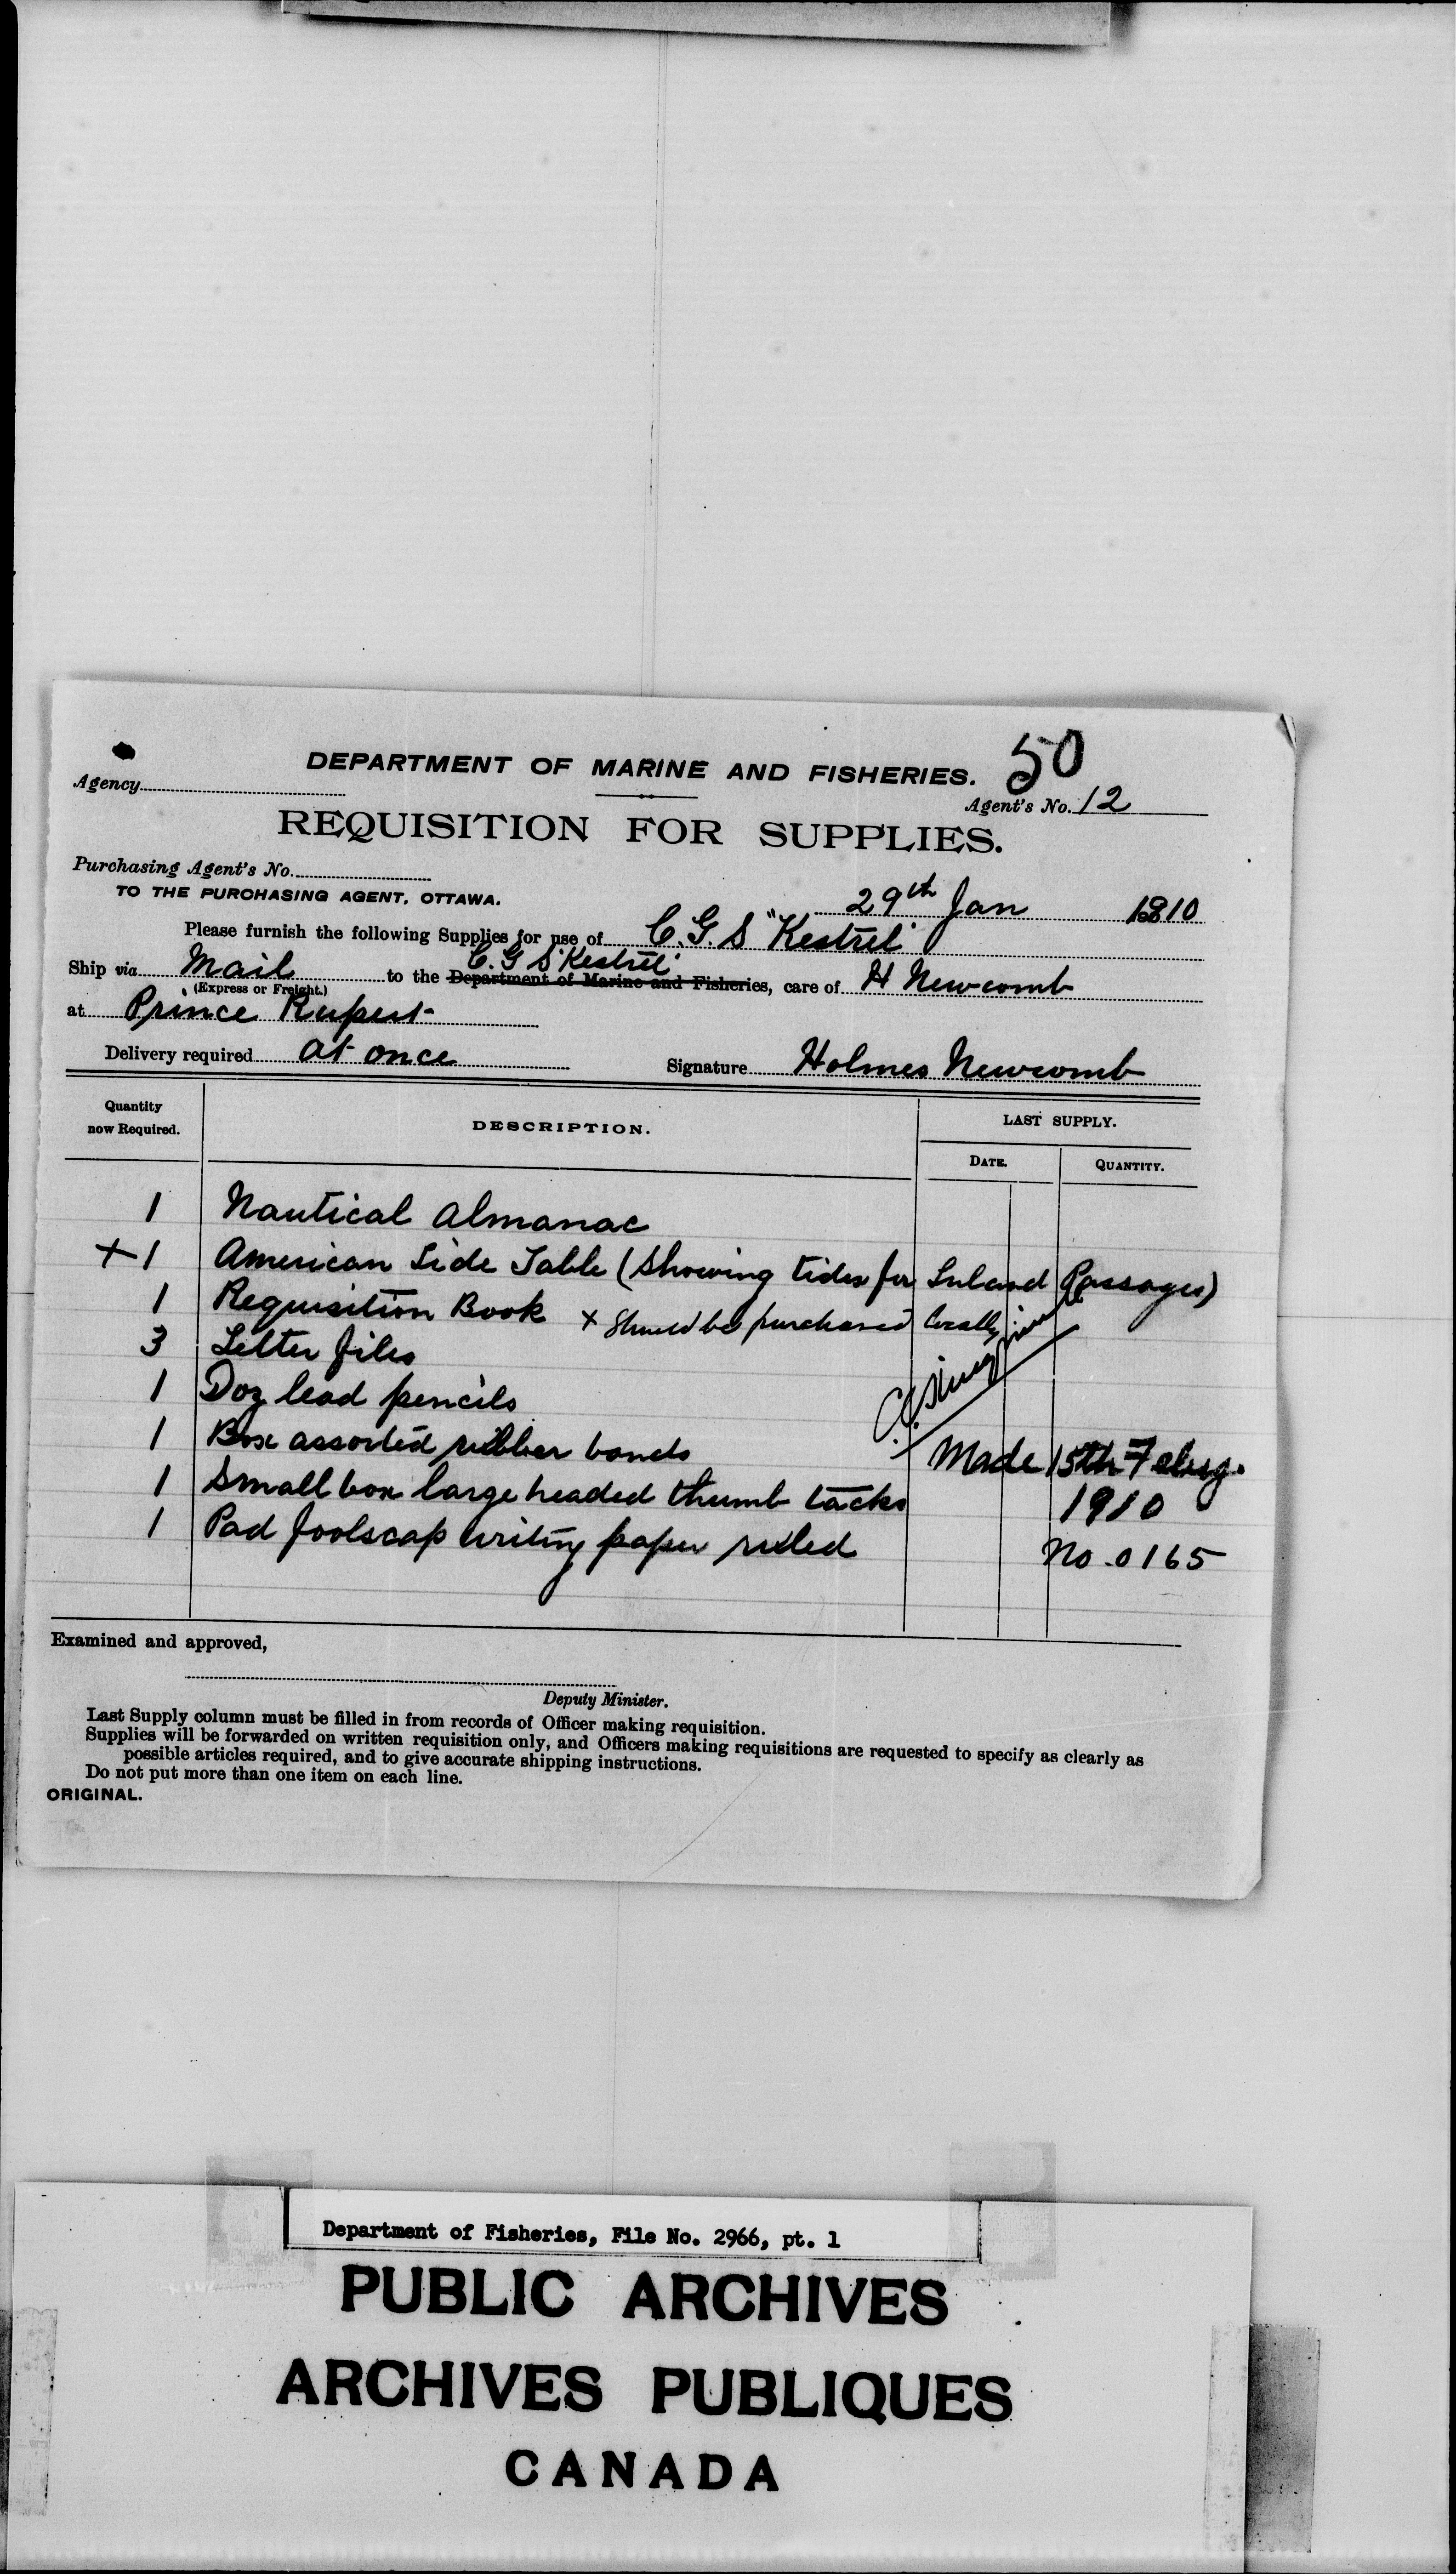 50
DEPARTMENT OF MARINE AND FISHERIES.
Agency
Agent's No. 12
REQUISITION FOR SUPPLIES.
Purchasing Agent's No.
TO THE PURCHASING AGENT, OTTAWA.
29th Jan 1910
Please furnish the following Supplies for use of C.G.S "Kestrel"
C.G S "Kestrel"
Ship via Mail to the Department of Marine and Fisheries, care of H Newcomb
(Express or Freight.)
at Prince Rupert
Delivery required at once Signature Holmes Newcomb
Quantity now Required. DESCRIPTION. LAST SUPPLY.
DATE. QUANTITY.
1 Nautical Almanac
+ 1 American Tide Table (Showing tides for Inland Passages)
1 Requisition Book x Should be purchased locally
3 Letter files
1 Doz lead pencils
1 Box assorted rubber bands
Made 15th Feby.
1 Small box large headed thumb tacks
1910
1 Pad foolscap writing paper ruled
No. 0165
Examined and approved,
Deputy Minister.
Last Supply column must be filled in from records of Officer making requisition.
Supplies will be forwarded on written requisition only, and Officers making requisitions are requested to specify as clearly as
possible articles required, and to give accurate shipping instructions.
Do not put more than one item on each line.
ORIGINAL.
Department of Fisheries, File No. 2966, pt. 1
PUBLIC ARCHIVES
ARCHIVES PUBLIQUES
CANADA